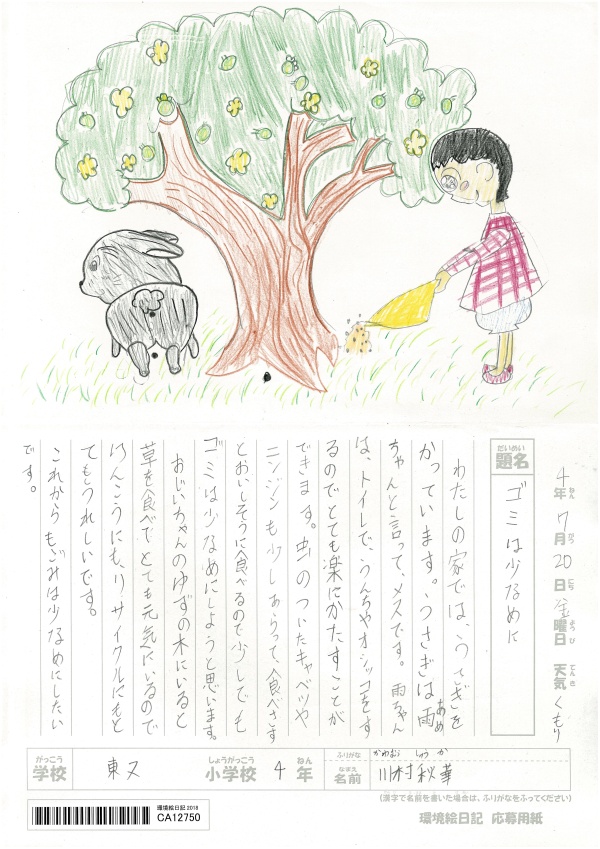 4年 7月 20日 金曜日 天気 くもり
ねん がつ にち よう び てん き
だいめい
題名 ゴミは少なめに
わたしの家では、うさぎを
かっています。うさぎは雨
あめ
ちゃんと言って、メスです。雨ちゃん
は、トイレで、うんちやオシッコをす
るのでとても楽にかたすことが
できます。虫のついたキャベツや
ニンジンも少しあらって、食べさす
とおいしそうに食べるので少しでも
ゴミは少なめにしようと思います。
おじいちゃんのゆずの木にいると
草を食べてとても元気にいるので
けんこうにも、リサイクルにもと
てもうれしいです。
これからもごみは少なめにしたい
です。
がっこう しょうがっこう ねん
学校 東又 小学校 4 年
ふりがな かわむら しゅう か
なまえ
名前 川村秋華
(漢字で名前を書いた場合は、ふりがなをふってください)
環境絵日記 2018
CA12750
環境絵日記 応募用紙